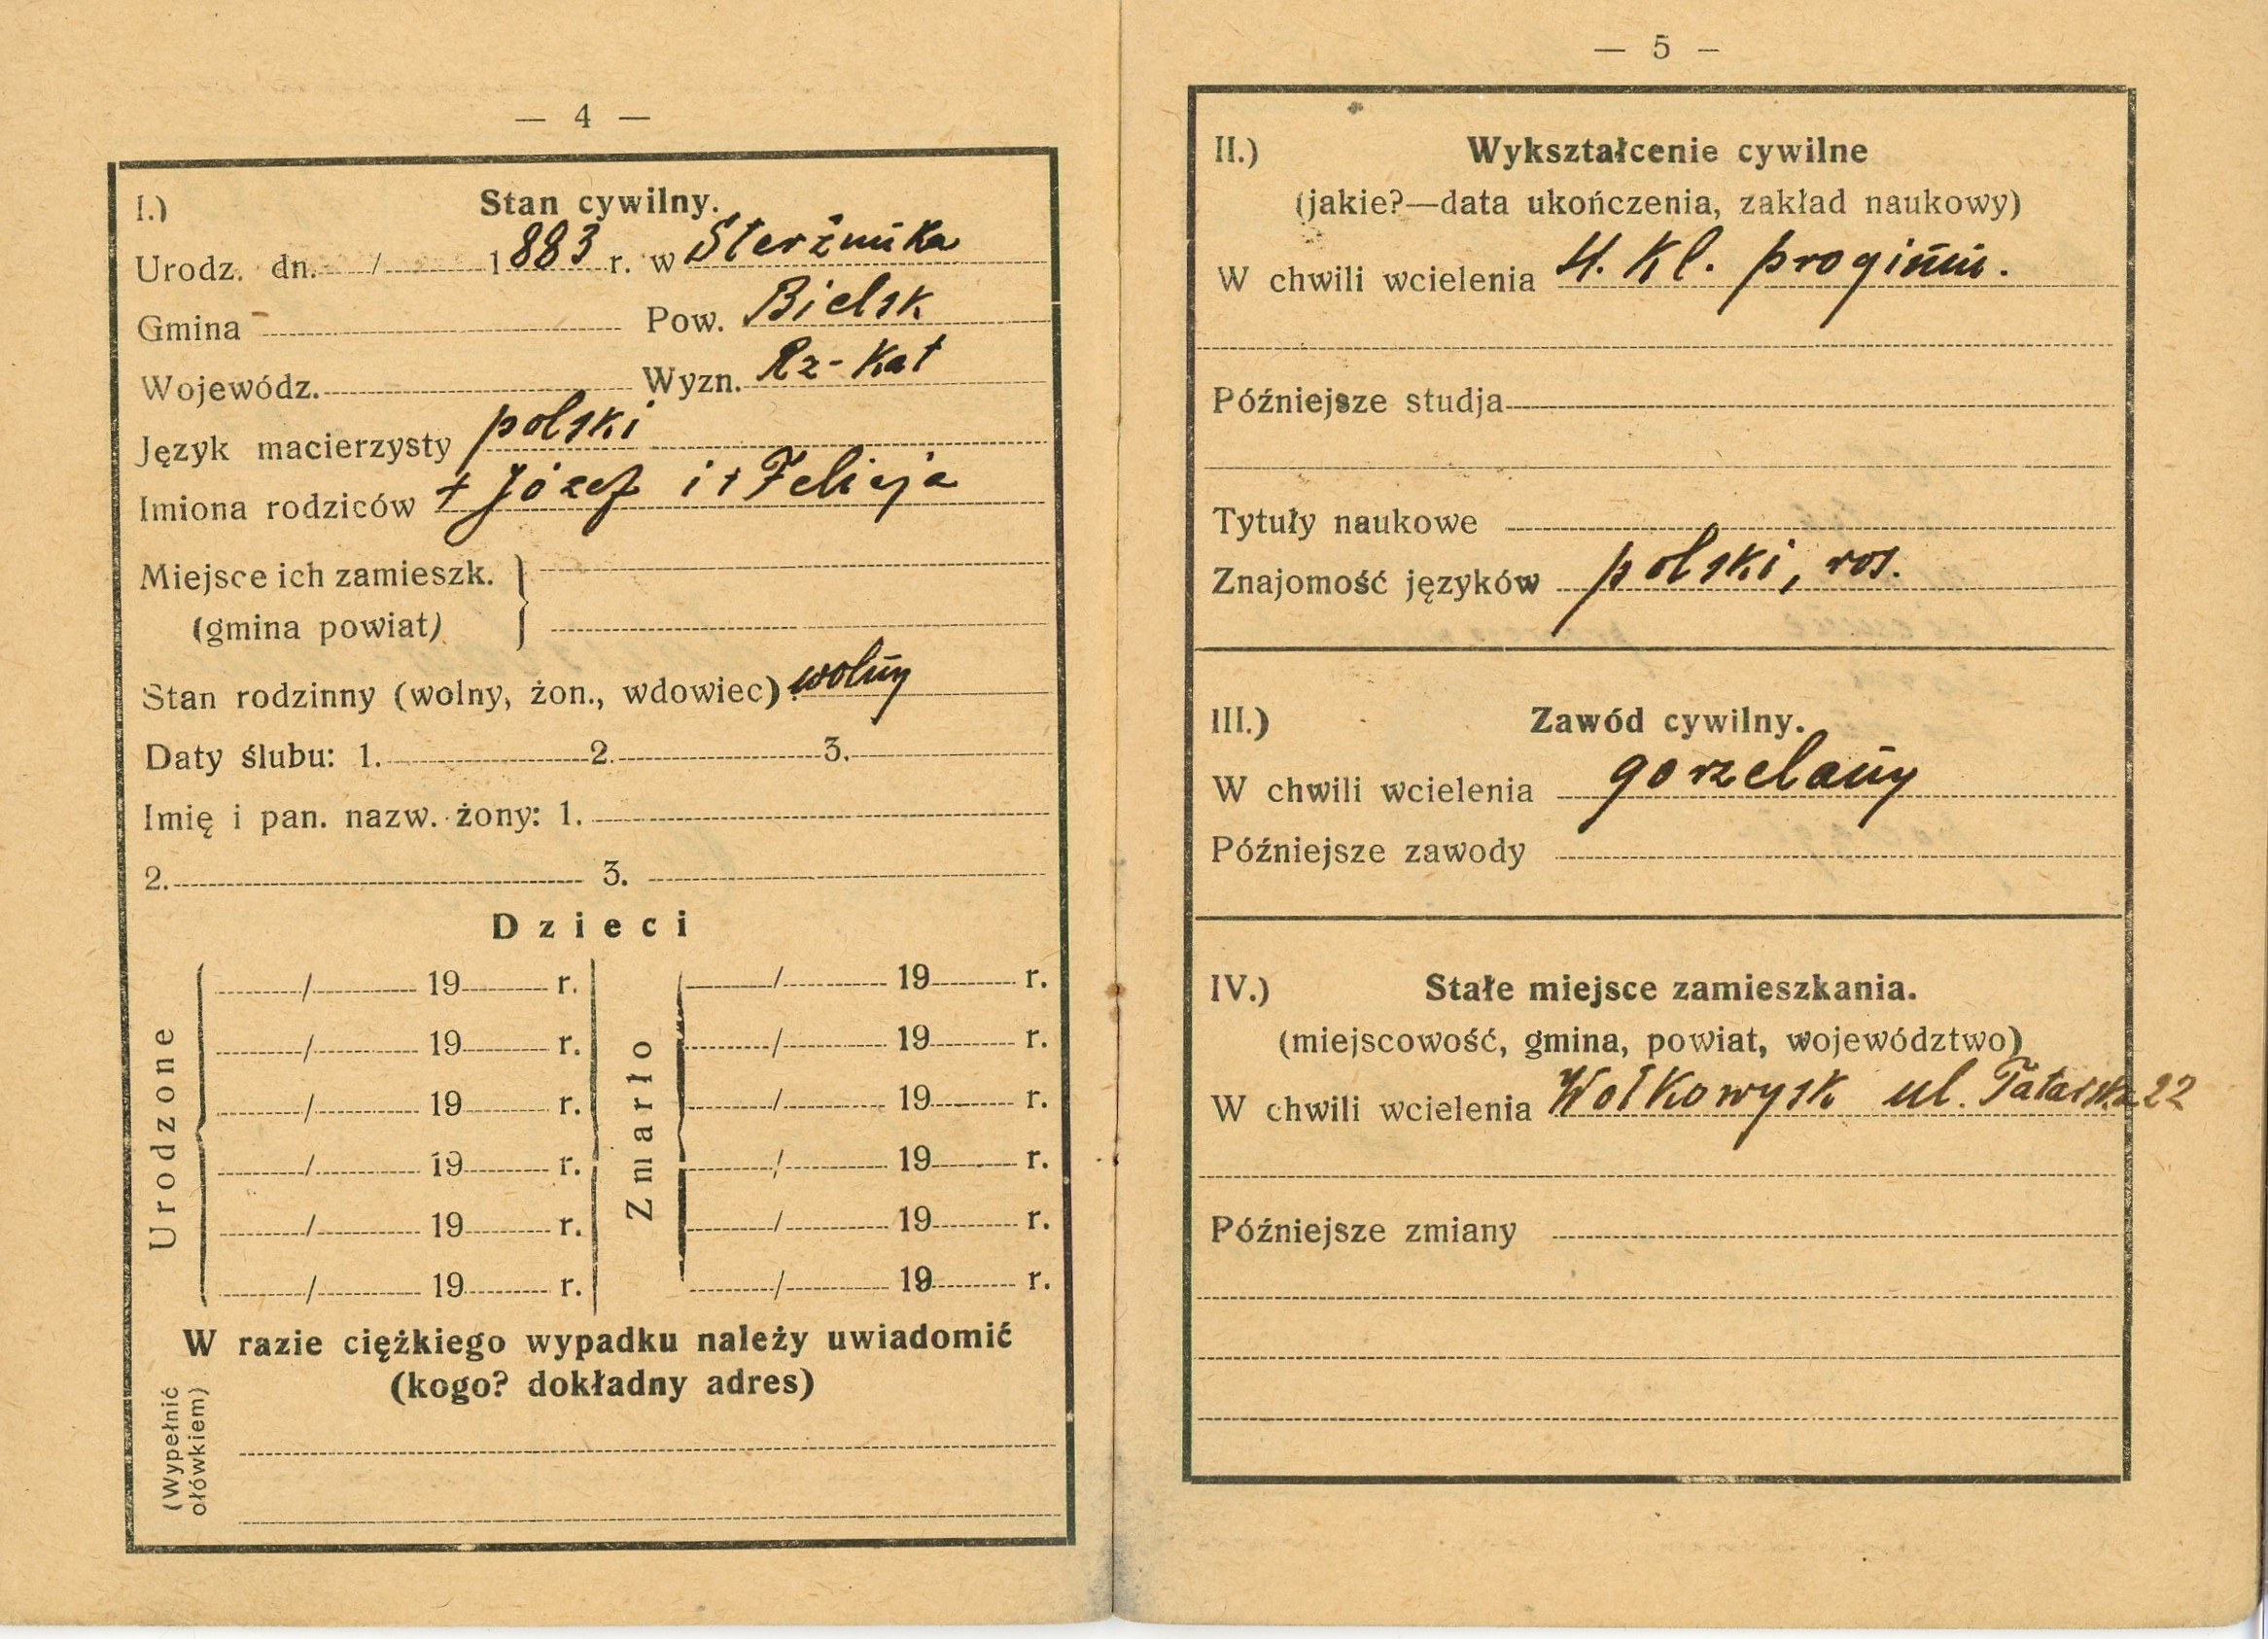 — 4 —
I.) Stan cywilny.
Urodz. dn. / 1883 r. w Sterżnika
Gmina - Pow. Bielsk
Wojewódz. Wyzn. Rz-Kat
Język macierzysty polski
Imiona rodziców + Józef i + Felicja
Miejsce ich zamieszk. }
(gmina powiat)
Stan rodzinny (wolny, żon., wdowiec) wolny
Daty ślubu: 1. 2. 3.
Imię i pan. nazw. żony: 1.
2. 3.
Dzieci
Urodzone
/ 19 r.
/ 19 r.
/ 19 r.
/ 19 r.
/ 19 r.
/ 19 r.
Zmarło
/ 19 r.
/ 19 r.
/ 19 r.
/ 19 r.
/ 19 r.
/ 19 r.
W razie ciężkiego wypadku należy uwiadomić
(kogo? dokładny adres)
(Wypełnić
ołówkiem)
— 5 —
II.) Wykształcenie cywilne
(jakie?—data ukończenia, zakład naukowy)
W chwili wcielenia 4. Kl. progimn.
Późniejsze studja
Tytuły naukowe
Znajomość języków polski, ros.
III.) Zawód cywilny.
W chwili wcielenia gorzelany
Późniejsze zawody
IV.) Stałe miejsce zamieszkania.
(miejscowość, gmina, powiat, województwo)
W chwili wcielenia Wołkowysk ul. Tatarska 22
Późniejsze zmiany